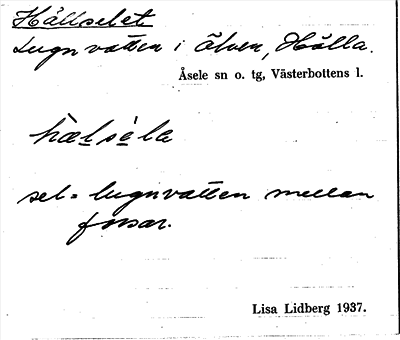 Hällselet
Lugnvatten i älven, Hälla.
Åsele sn o. tg, Västerbottens l.
hæl sèla
sel = lugnvatten mellan
forsar.
Lisa Lidberg 1937.